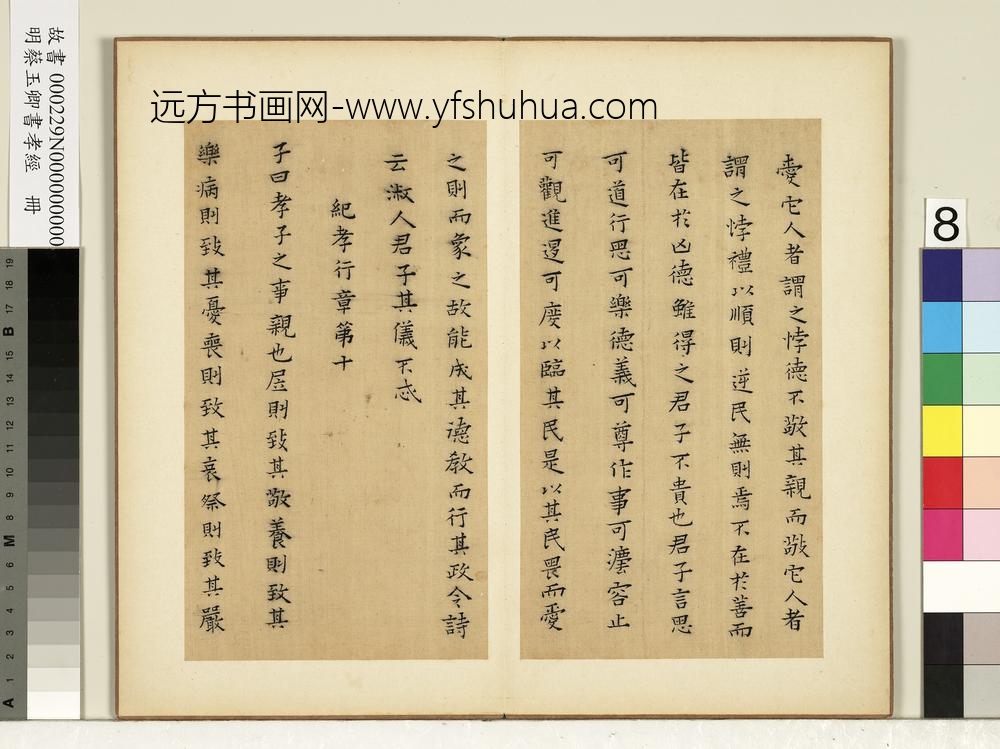 远方书画网-www.yfshuhua.com
愛它人者謂之悖德不敬其親而敬它人者
謂之悖禮以順則逆民無則焉不在於善而
皆在於凶德雖得之君子不貴也君子言思
可道行思可樂德義可尊作事可灋容止
可觀進退可度以臨其民是以其民畏而愛
之則而象之故能成其德教而行其政令詩
云淑人君子其儀不忒
紀孝行章第十
子曰孝子之事親也居則致其敬養則致其
樂病則致其憂喪則致其哀祭則致其嚴
故書 000229N000000000
明蔡玉卿書孝經 冊
8
A 1 2 3 4 5 6 M 8 9 10 11 12 13 14 15 B 17 18 19